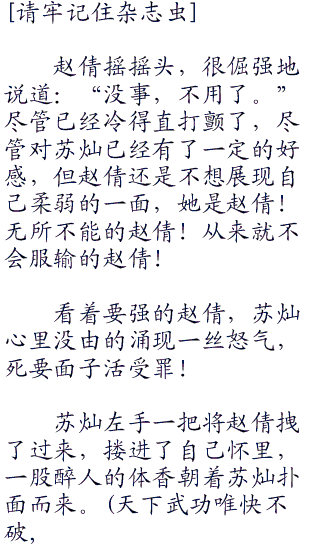 [请牢记住杂志虫]
赵倩摇摇头，很倔强地
说道：“没事，不用了。”
尽管已经冷得直打颤了，尽
管对苏灿已经有了一定的好
感，但赵倩还是不想展现自
己柔弱的一面，她是赵倩！
无所不能的赵倩！从来就不
会服输的赵倩！
看着要强的赵倩，苏灿
心里没由的涌现一丝怒气，
死要面子活受罪！
苏灿左手一把将赵倩拽
了过来，搂进了自己怀里，
一股醉人的体香朝着苏灿扑
面而来。(天下武功唯快不
破，